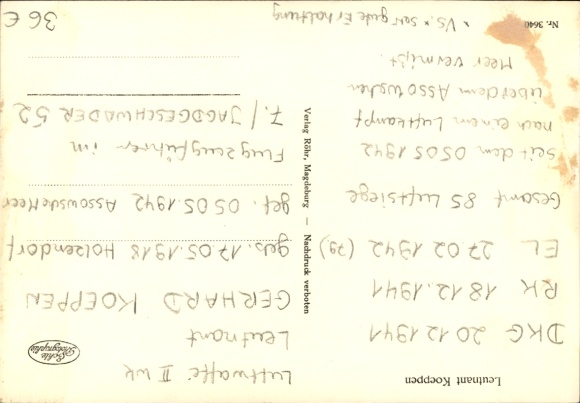 Leutnant Koeppen
DKG 20.12.1941
RK 18.12.1941
EL 27.02.1942 (79)
Gesamt 85 Luftsiege
seit dem 05.05.1942
nach einem Luftkampf
über dem Assowschen
Meer vermißt.
Nr. 3640
* VS. * sehr gute Erhaltung
Verlag Röhr, Magdeburg — Nachdruck verboten
Echte
Photographie
Luftwaffe II WK
Leutnant
GERHARD KOEPPEN
geb. 17.05.1918 Holzendorf
gef. 05.05.1942 Meer
Flugzeugführer im
7./JAGDGESCHWADER 52
36 €